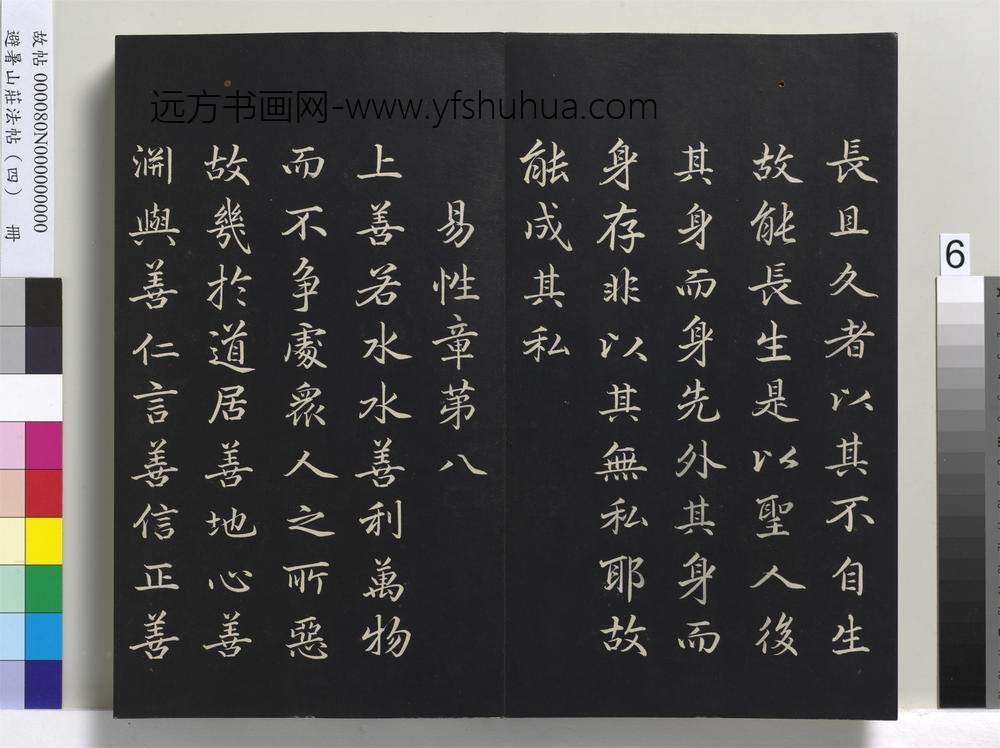 長且久者以其不自生
故能長生是以聖人後
其身而身先外其身而
身存非以其無私耶故
能成其私
易性章第八
上善若水水善利萬物
而不争處衆人之所惡
故幾於道居善地心善
渊與善仁言善信正善
远方书画网-www.yfshuhua.com
故帖000080N000000000
避暑山莊法帖(四) 冊
6